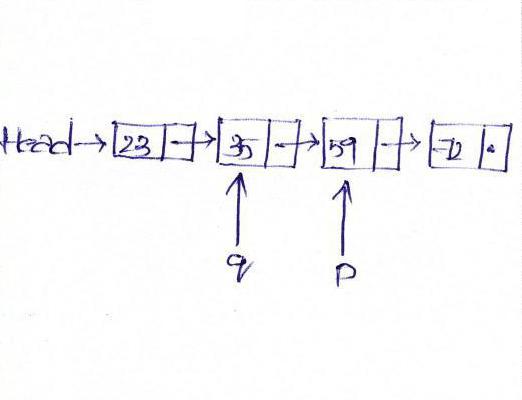 Head 23 35 59 72
q p